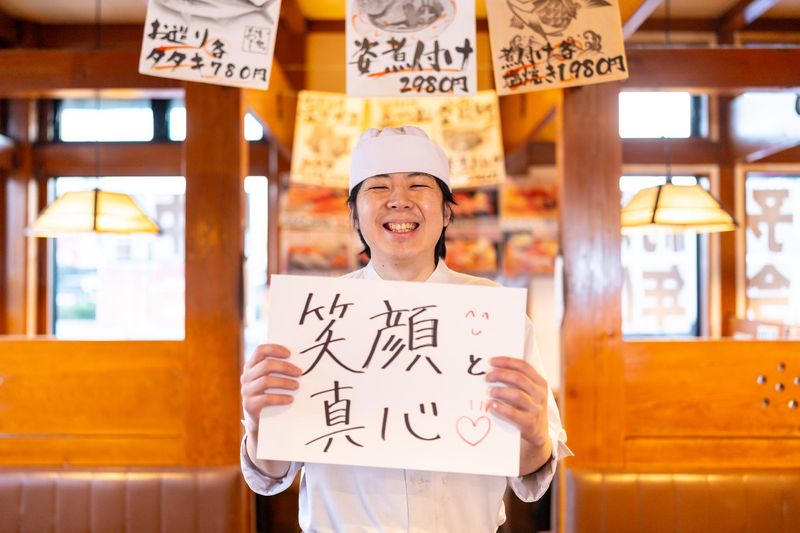 お造り各
タタキ780円
姿煮付け
2980円
煮付け各
塩焼き1980円
笑顔と
真心